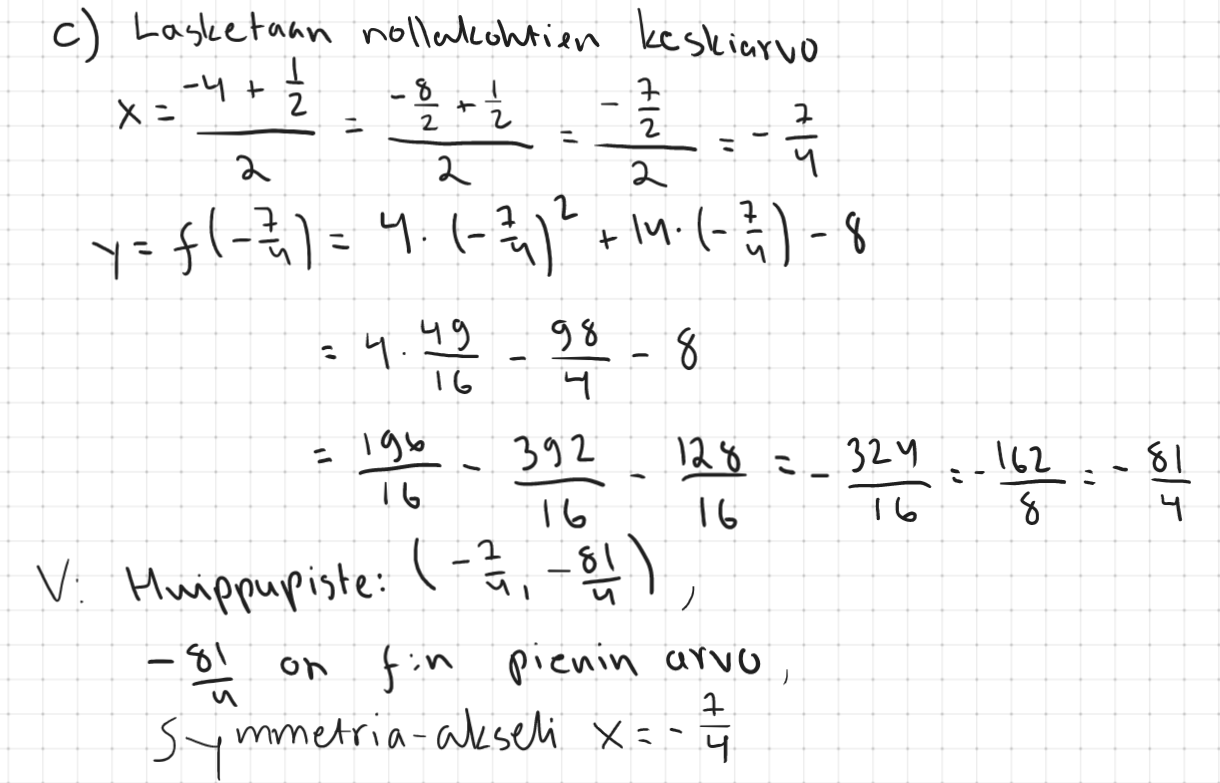 c) Lasketaan nollakohtien keskiarvo
x = (-4 + 1/2)/2 = (-8/2 + 1/2)/2 = (-7/2)/2 = -7/4
y = f(-7/4) = 4·(-7/4)² + 14·(-7/4) - 8
= 4·49/16 - 98/4 - 8
= 196/16 - 392/16 - 128/16 = -324/16 = -162/8 = -81/4
V: Huippupiste: (-7/4, -81/4),
-81/4 on f:n pienin arvo,
Symmetria-akseli x = -7/4